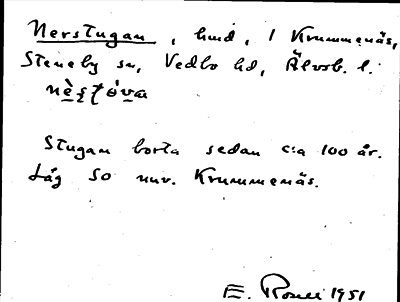 Nerstugan, hmd, i Krummenäs,
Steneby sn, Vedbo hd, Älvsb. l.
Stugan borta sedan c:a 100 år.
Låg SO nuv. Krummenäs.
E. 1951